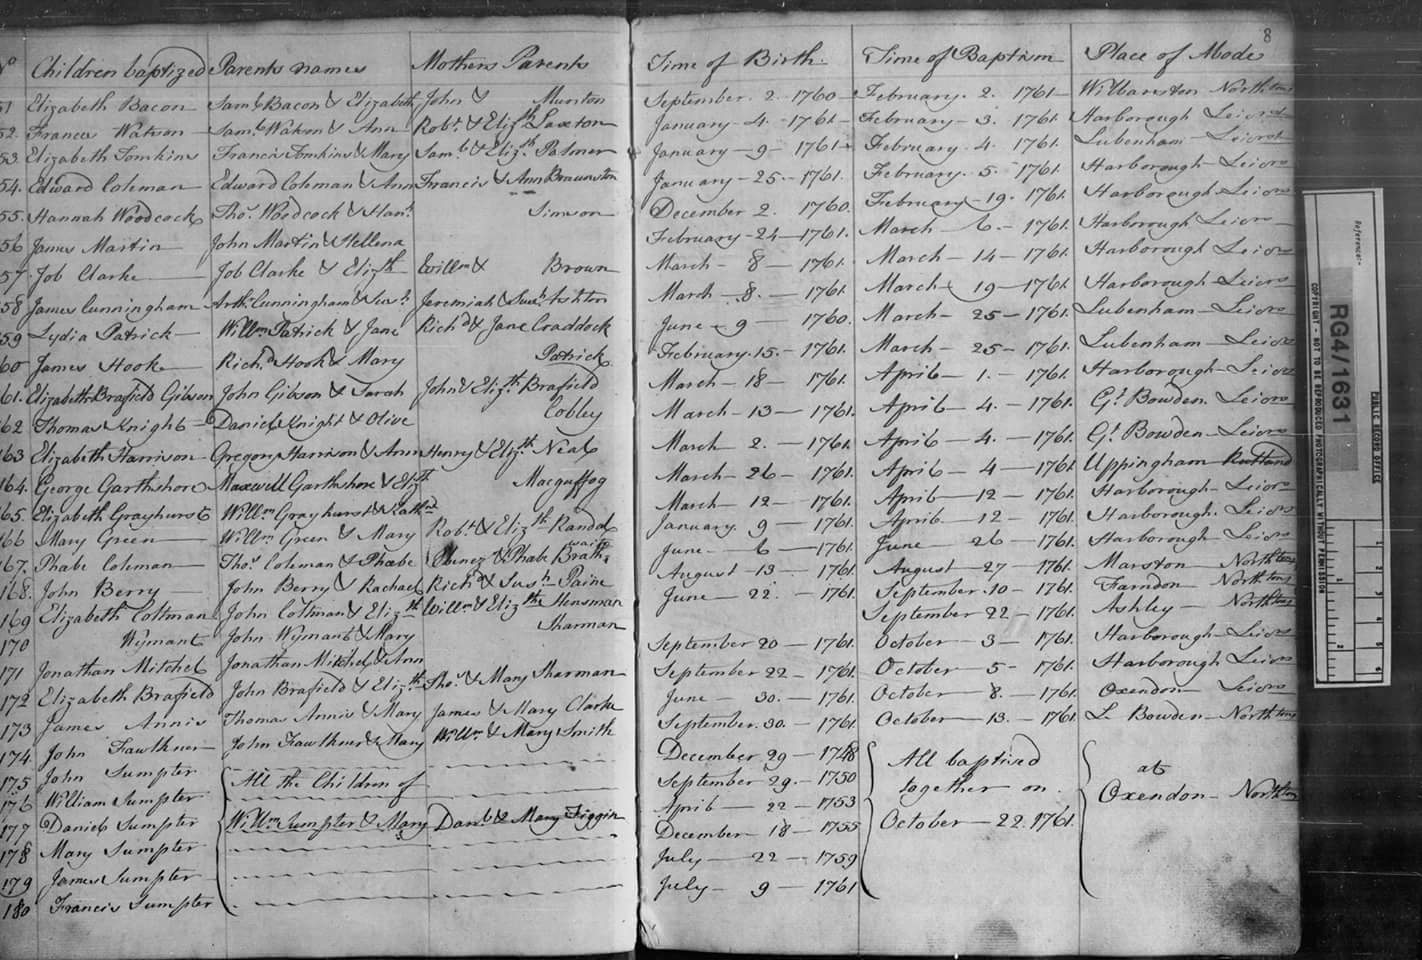 8
No Children baptized Parents names Mothers Parents Time of Birth. Time of Baptism Place of Abode
51 Elizabeth Bacon Saml. Bacon & Elizabeth John & Munton September 2. 1760 February 2. 1761 Wilbarston
52. Frances Watson Saml. Watson & Ann Robt. & Elizth Laxton January 4. 1761 February 3. 1761 Harborough
53. Elizabeth Tomkins Francis Tomkins & Mary Saml. & Elizh. Palmer January 9 1761 February 4. 1761. Lubenham
54. Edward Coleman Edward Coleman & Ann Francis & Ann Braunston January 25. 1761. February 5. 1761. Harborough Leicrs
55. Hannah Woodcock Thos. Woodcock & Hanh. Simson December 2. 1760. February 19. 1761. Harborough Leicrs
56 James Martin John Martin & Hellena February 24 1761. March 6. 1761. Harborough Leicrs
57. Job Clarke Job Clarke & Elizth Willm & Brown March 8 1761. March 14 1761. Harborough Leicrs
58 James Cunningham Arthr. Cunningham & Sush. Jeremiah & Sush. Ashton March 8. 1761 March 19 1761. Harborough Leicrs
59 Lydia Patrick Willm Patrick & Jane Richd & Jane Craddock June 9 1760. March 25 1761. Lubenham Leicrs
60 James Hook Richd. Hook & Mary Patrick February 15. 1761. March 25 1761. Lubenham Leicrs
61. Elizabeth Brafield Gibson John Gibson & Sarah John & Elizth Brafield March 18 1761. April 1. 1761. Harborough Leicrs
62 Thomas Knight Daniel Knight & Olive Cobley March 13 1761. April 4. 1761. Gt. Bowden Leicrs
163 Elizabeth Harrison Gregory Harrison & Ann Henry & Elizth Neal March 2. 1761. April 4. 1761. Gt. Bowden Leicrs
164. George Garthshore Maxwell Garthshore & Elizth Macguffog March 26 1761. April 4 1761. Uppingham Rutland
165. Elizabeth Grayhurst Willm Grayhurst & March 12 1761. April 12 1761. Harborough Leicrs
166 Mary Green Willm Green & Mary Robt. & Elizth Randal January 9 1761. April 12 1761. Harborough. Leicrs
167. Phabe Coleman Thos. Coleman & Phabe & Phabe June 6 1761. June 26 1761. Harborough Leicrs
168. John Berry John Berry & Rachael Richd & Sush Paine August 13 1761. August 27 1761. Marston
169 Elizabeth Coltman John Coltman & Elizth Willm & Elizth Hensman June 22. 1761. September 10 1761. Farndon
170 Wymant John Wymant & Mary Sharman September 22 1761. Ashley
171 Jonathan Mitchel Jonathan Mitchel & Ann September 20 1761. October 3 1761. Harborough Leicrs
172 Elizabeth Brafield John Brafield & Elizth Thos. & Mary Sharman September 22 1761. October 5 1761. Harborough Leicrs
173 James Annis Thomas Annis & Mary James & Mary Clarke June 30. 1761. October 8. 1761. Oxendon Leicrs
174. John Fawlkner John Fawlkner & Mary Willm & Mary Smith September 30. 1761 October 13. 1761. L. Bowden
175 John Sumpter December 29 1748
176 William Sumpter September 29. 1750
177 Daniel Sumpter April 22 1753
178 Mary Sumpter December 18 1755
179 James Sumpter July 22 1759
180 Francis Sumpter July 9 1761
All the Children of
Willm Sumpter & Mary Danl & Mary Figgin
All baptised
together on
October 22. 1761.
at
Oxendon
Reference:-
RG4/1631
PUBLIC RECORD OFFICE
COPYRIGHT - NOT TO BE REPRODUCED PHOTOGRAPHICALLY WITHOUT PERMISSION